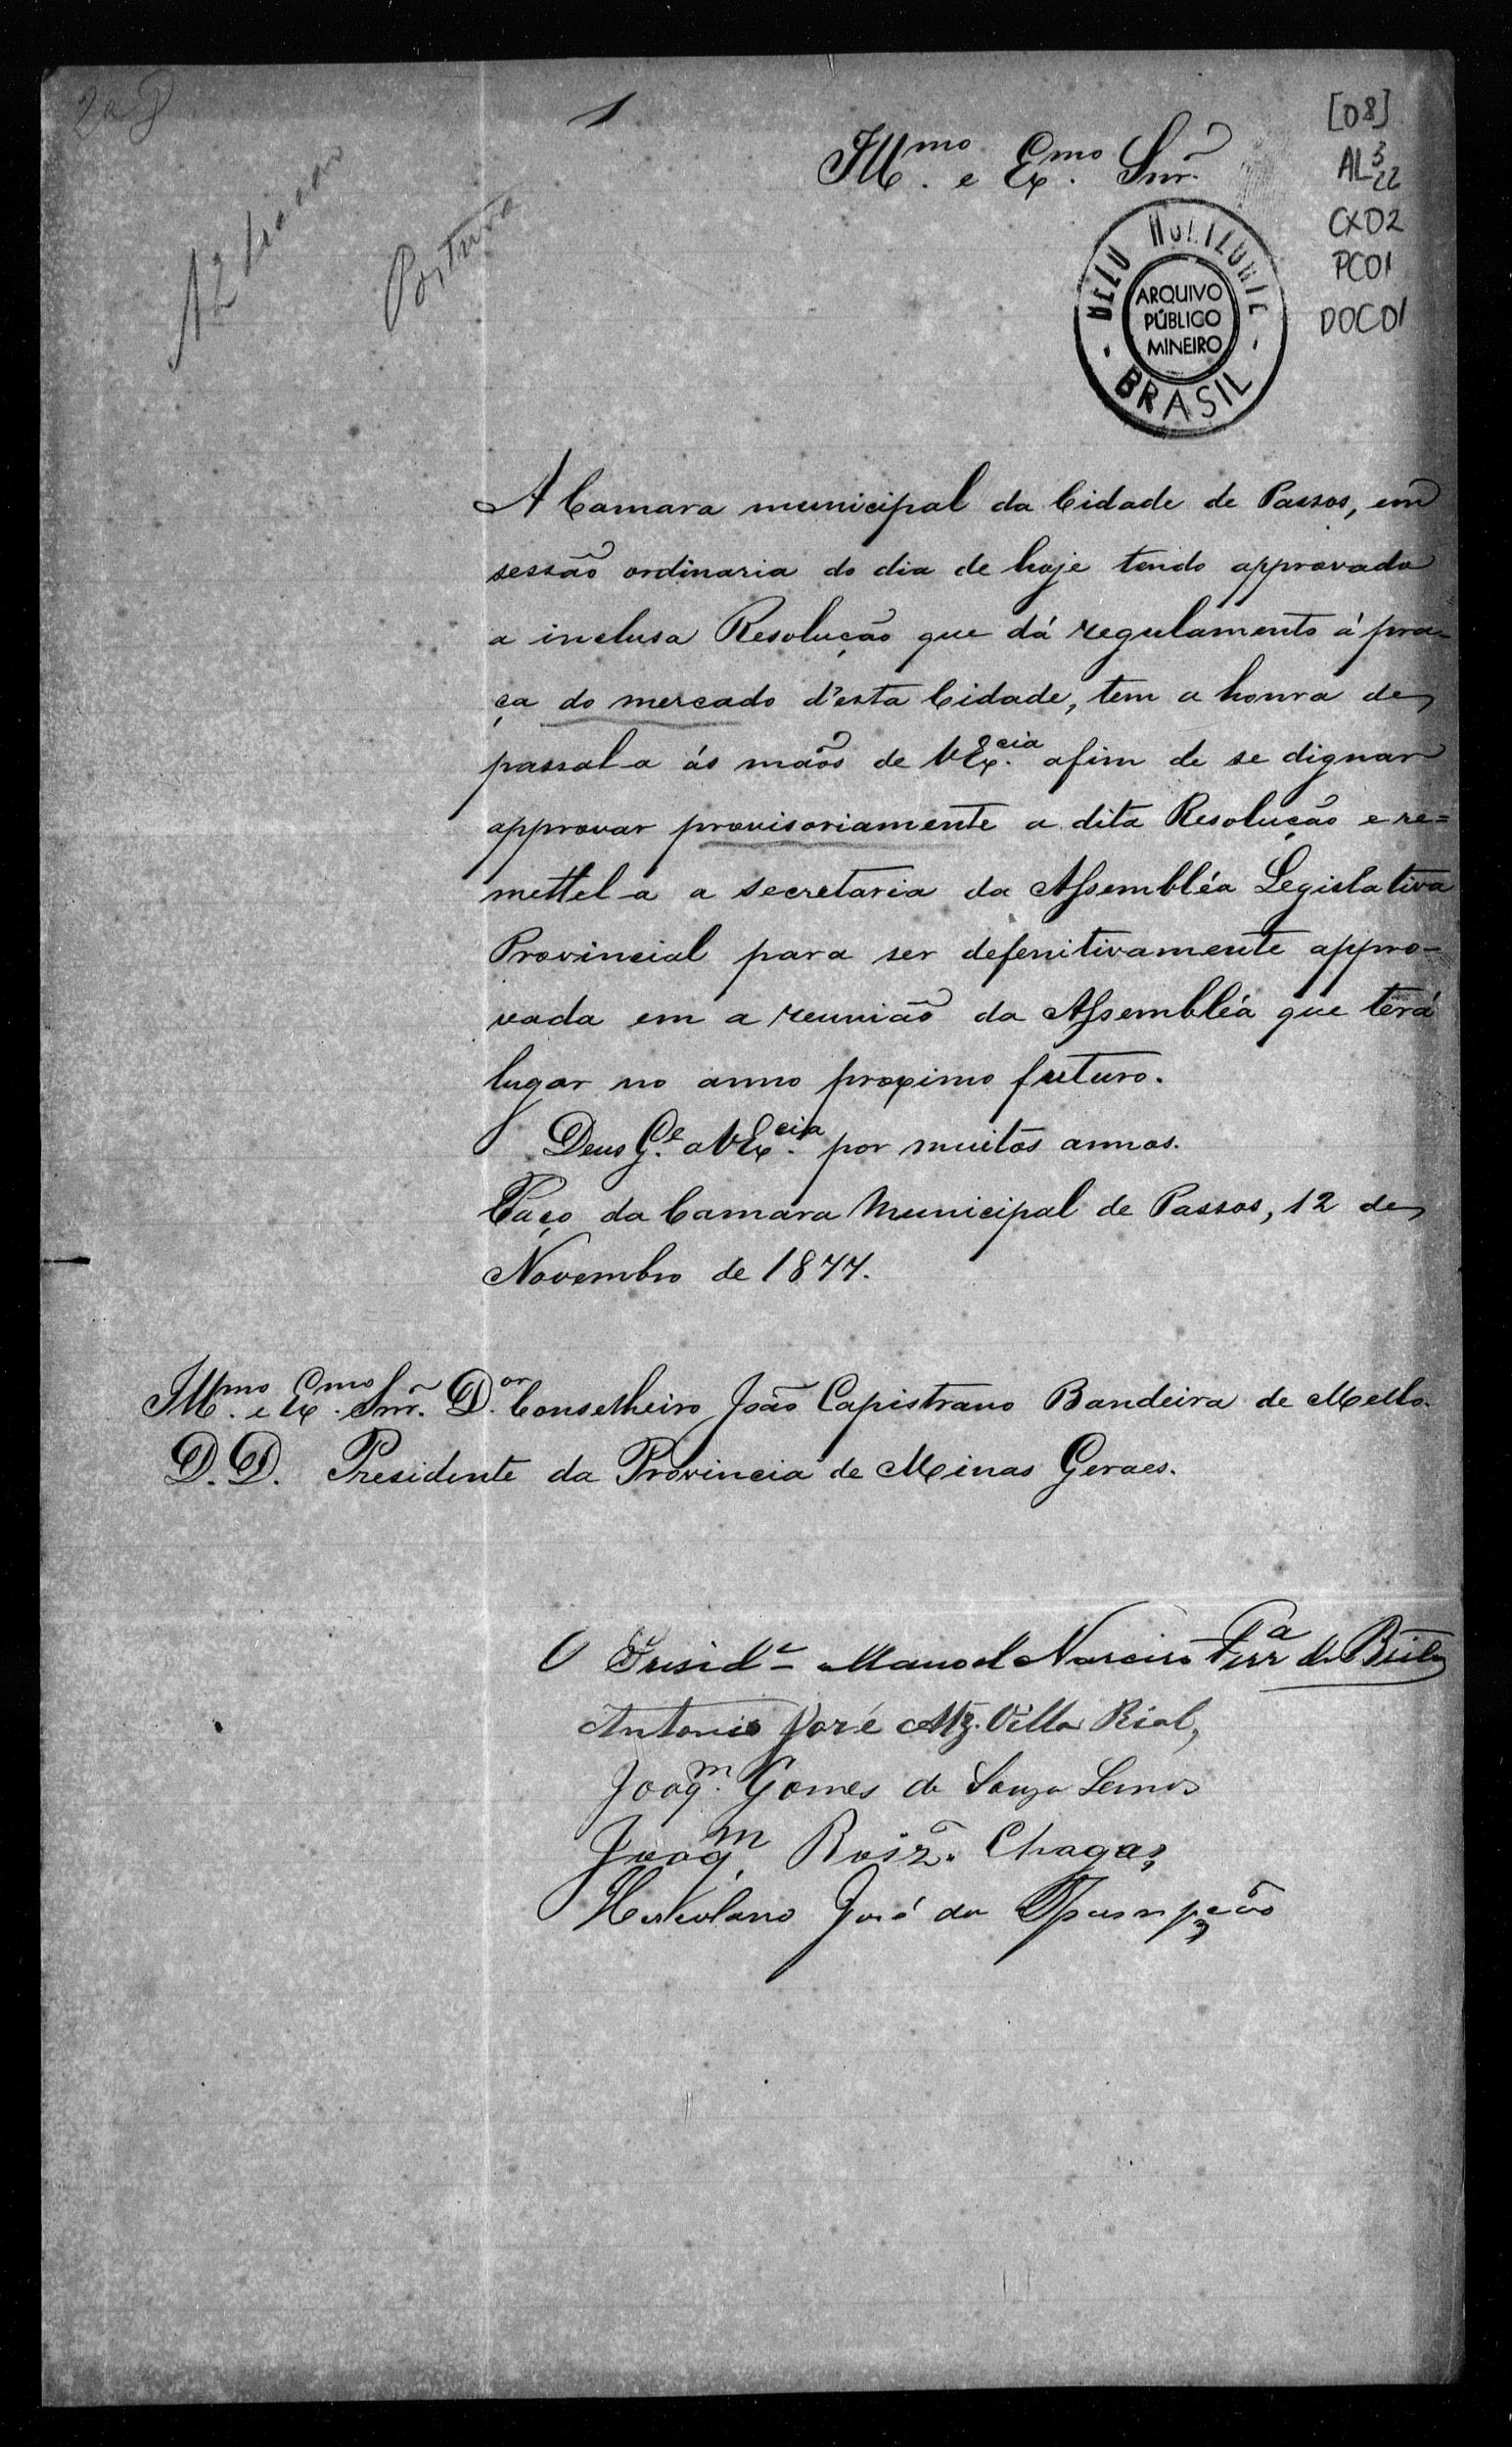 1
[08]
AL3
22
CX02
PC01
DOC01
Illmo. e Exmo. Snr.
BELO HORIZONTE
ARQUIVO
PÚBLICO
MINEIRO
BRASIL
Postura
A Camara municipal da Cidade de Passos, em
sessão ordinaria do dia de hoje tendo approvado
a inclusa Resolução que dá regulamento á pra-
ça do mercado d'esta Cidade, tem a honra de
passal-a ás mãos de VExcia. afim de se dignar
approvar provisoriamente a dita Resolução e re=
mettel-a a secretaria da Assembléa Legislativa
Provincial para ser defenitivamente appro-
vada em a reunião da Assembléa que terá
lugar no anno proximo futuro.
Deus Ge. a VExcia. por muitos annos.
Paço da Camara Municipal de Passos, 12 de
Novembro de 1877.
Illmo. e Exmo. Snr. Dor. Conselheiro João Capistrano Bandeira de Mello.
D.D. Presidente da Provincia de Minas Geraes.
O Preside Manoel Narciso Ferra de
Antonio José Mz. Villa Rial,
Joaqm. Gomes de Souza Lemos
Joaqm. Roiz. Chagas
Herculano José da Assumpção